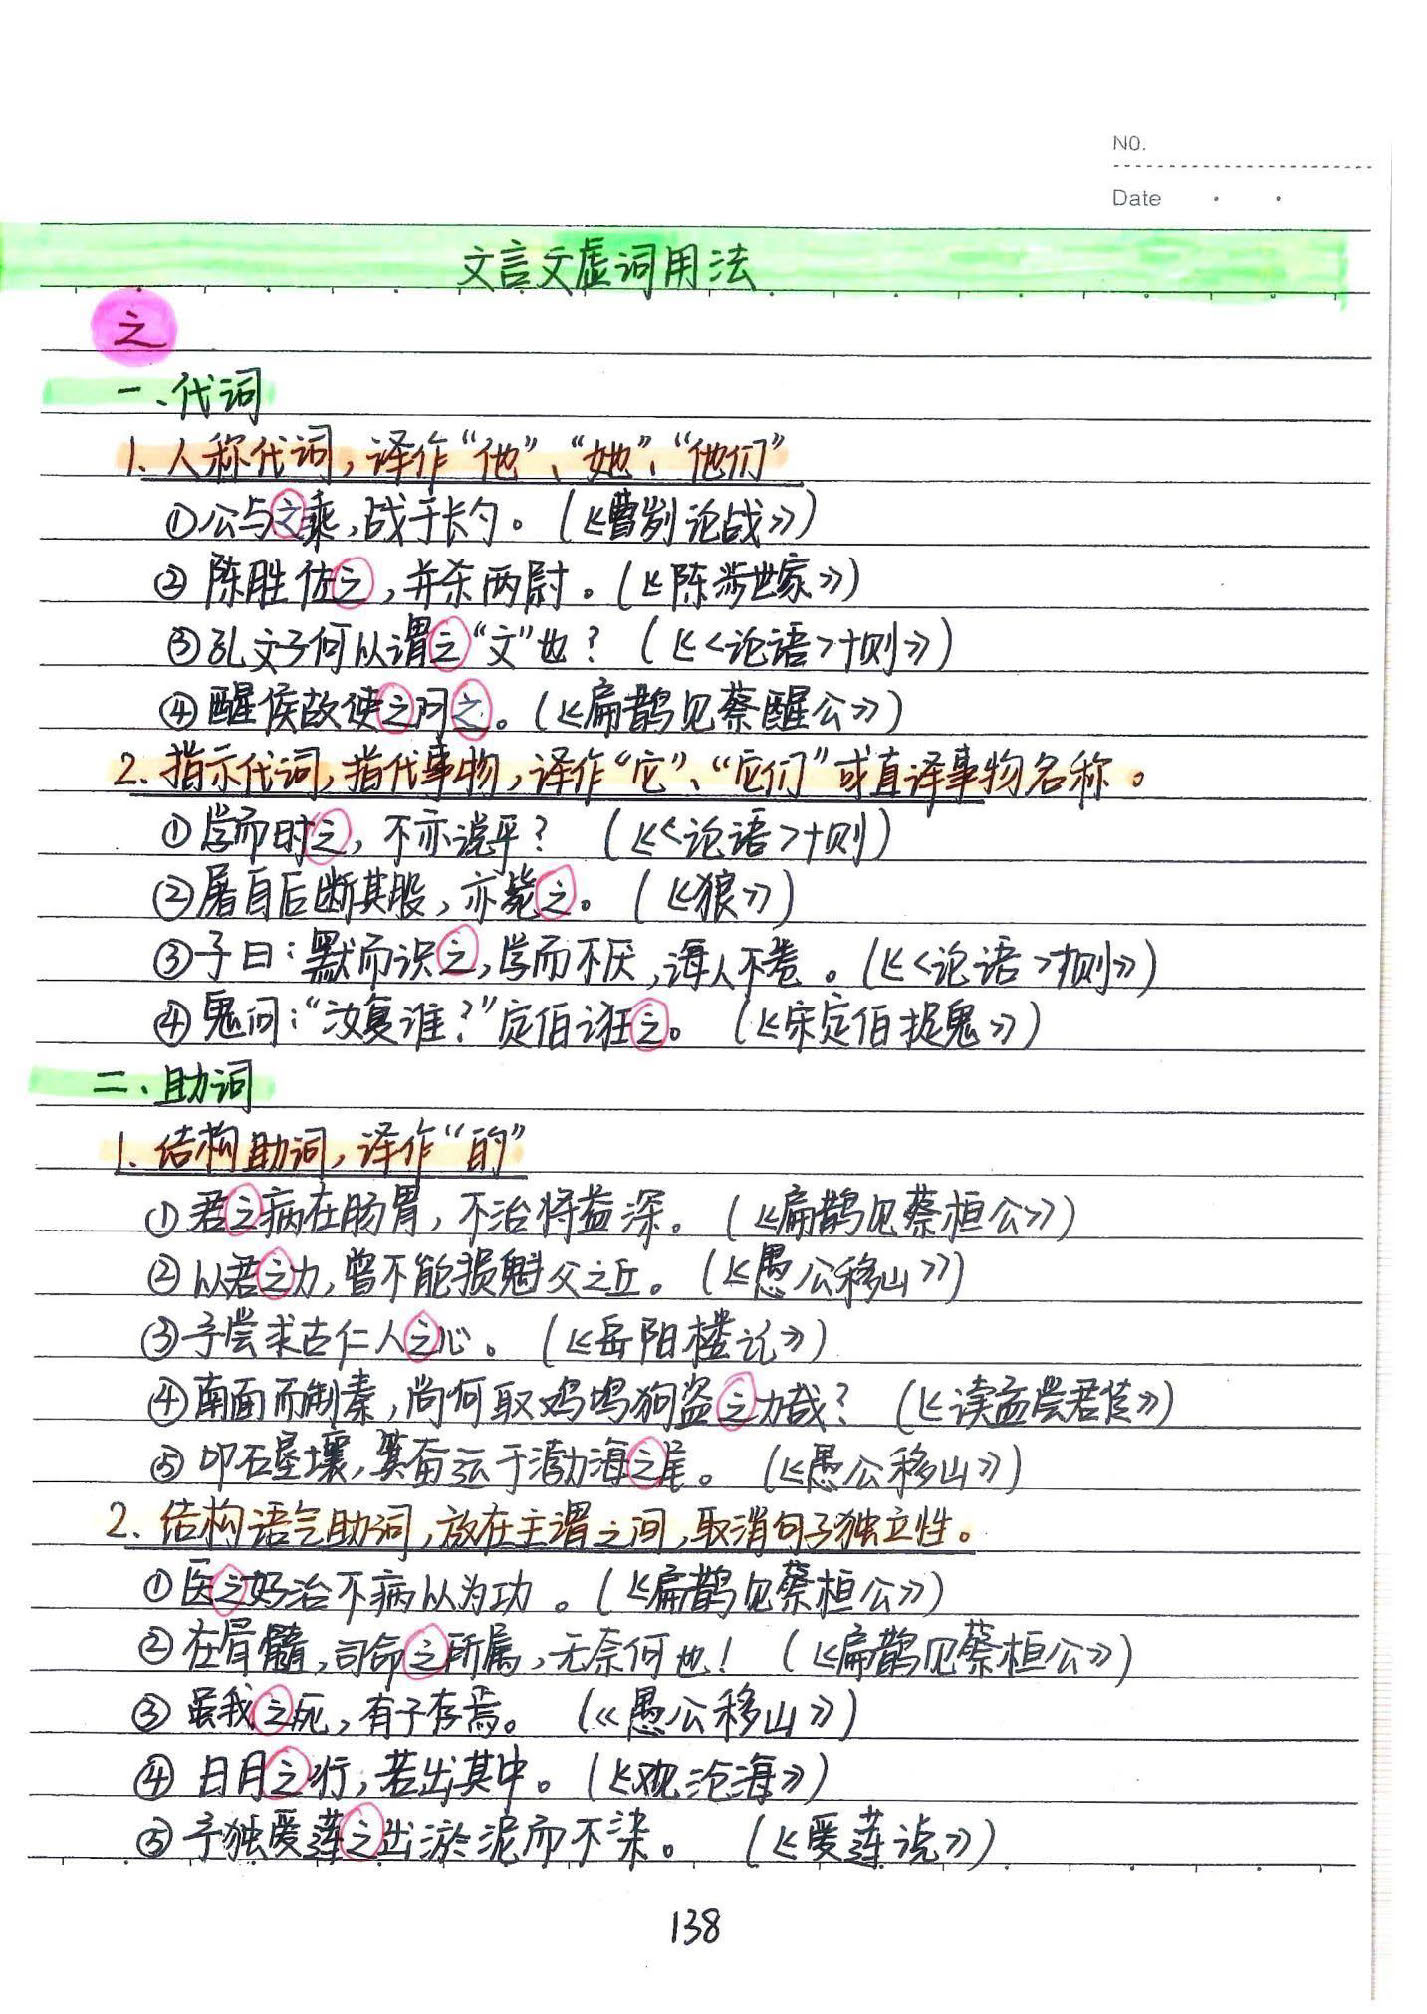 NO.
Date
文言文虚词用法
之
一、代词
1. 人称代词，译作“他”、“她”、“他们”
①公与之乘，战于长勺。（《曹刿论战》）
②陈胜佐之，并杀两尉。（《陈涉世家》）
③孔文子何以谓之“文”也？（《<论语>十则》）
④醒侯故使之问之。（《扁鹊见蔡醒公》）
2. 指示代词，指代事物，译作“它”、“它们”或直译事物名称。
①学而时之，不亦说乎？（《<论语>十则）
②屠自后断其股，亦毙之。（《狼》）
③子曰：默而识之，学而不厌，诲人不卷。（《<论语>十则》）
④鬼问：“汝复谁？”定伯诳之。（《宋定伯捉鬼》）
二、助词
1. 结构助词，译作“的”
①君之病在肠胃，不治将益深。（《扁鹊见蔡桓公》）
②以君之力，曾不能损魁父之丘。（《愚公移山》）
③予尝求古仁人之心。（《岳阳楼记》）
④南面而制秦，尚何取鸡鸣狗盗之力哉？（《读孟尝君传》）
⑤叩石垦壤，箕畚运于渤海之尾。（《愚公移山》）
2. 结构语气助词，放在主谓之间，取消句子独立性。
①医之好治不病以为功。（《扁鹊见蔡桓公》）
②在骨髓，司命之所属，无奈何也！（《扁鹊见蔡桓公》）
③虽我之死，有子存焉。（《愚公移山》）
④日月之行，若出其中。（《观沧海》）
⑤予独爱莲之出淤泥而不染。（《爱莲说》）
138